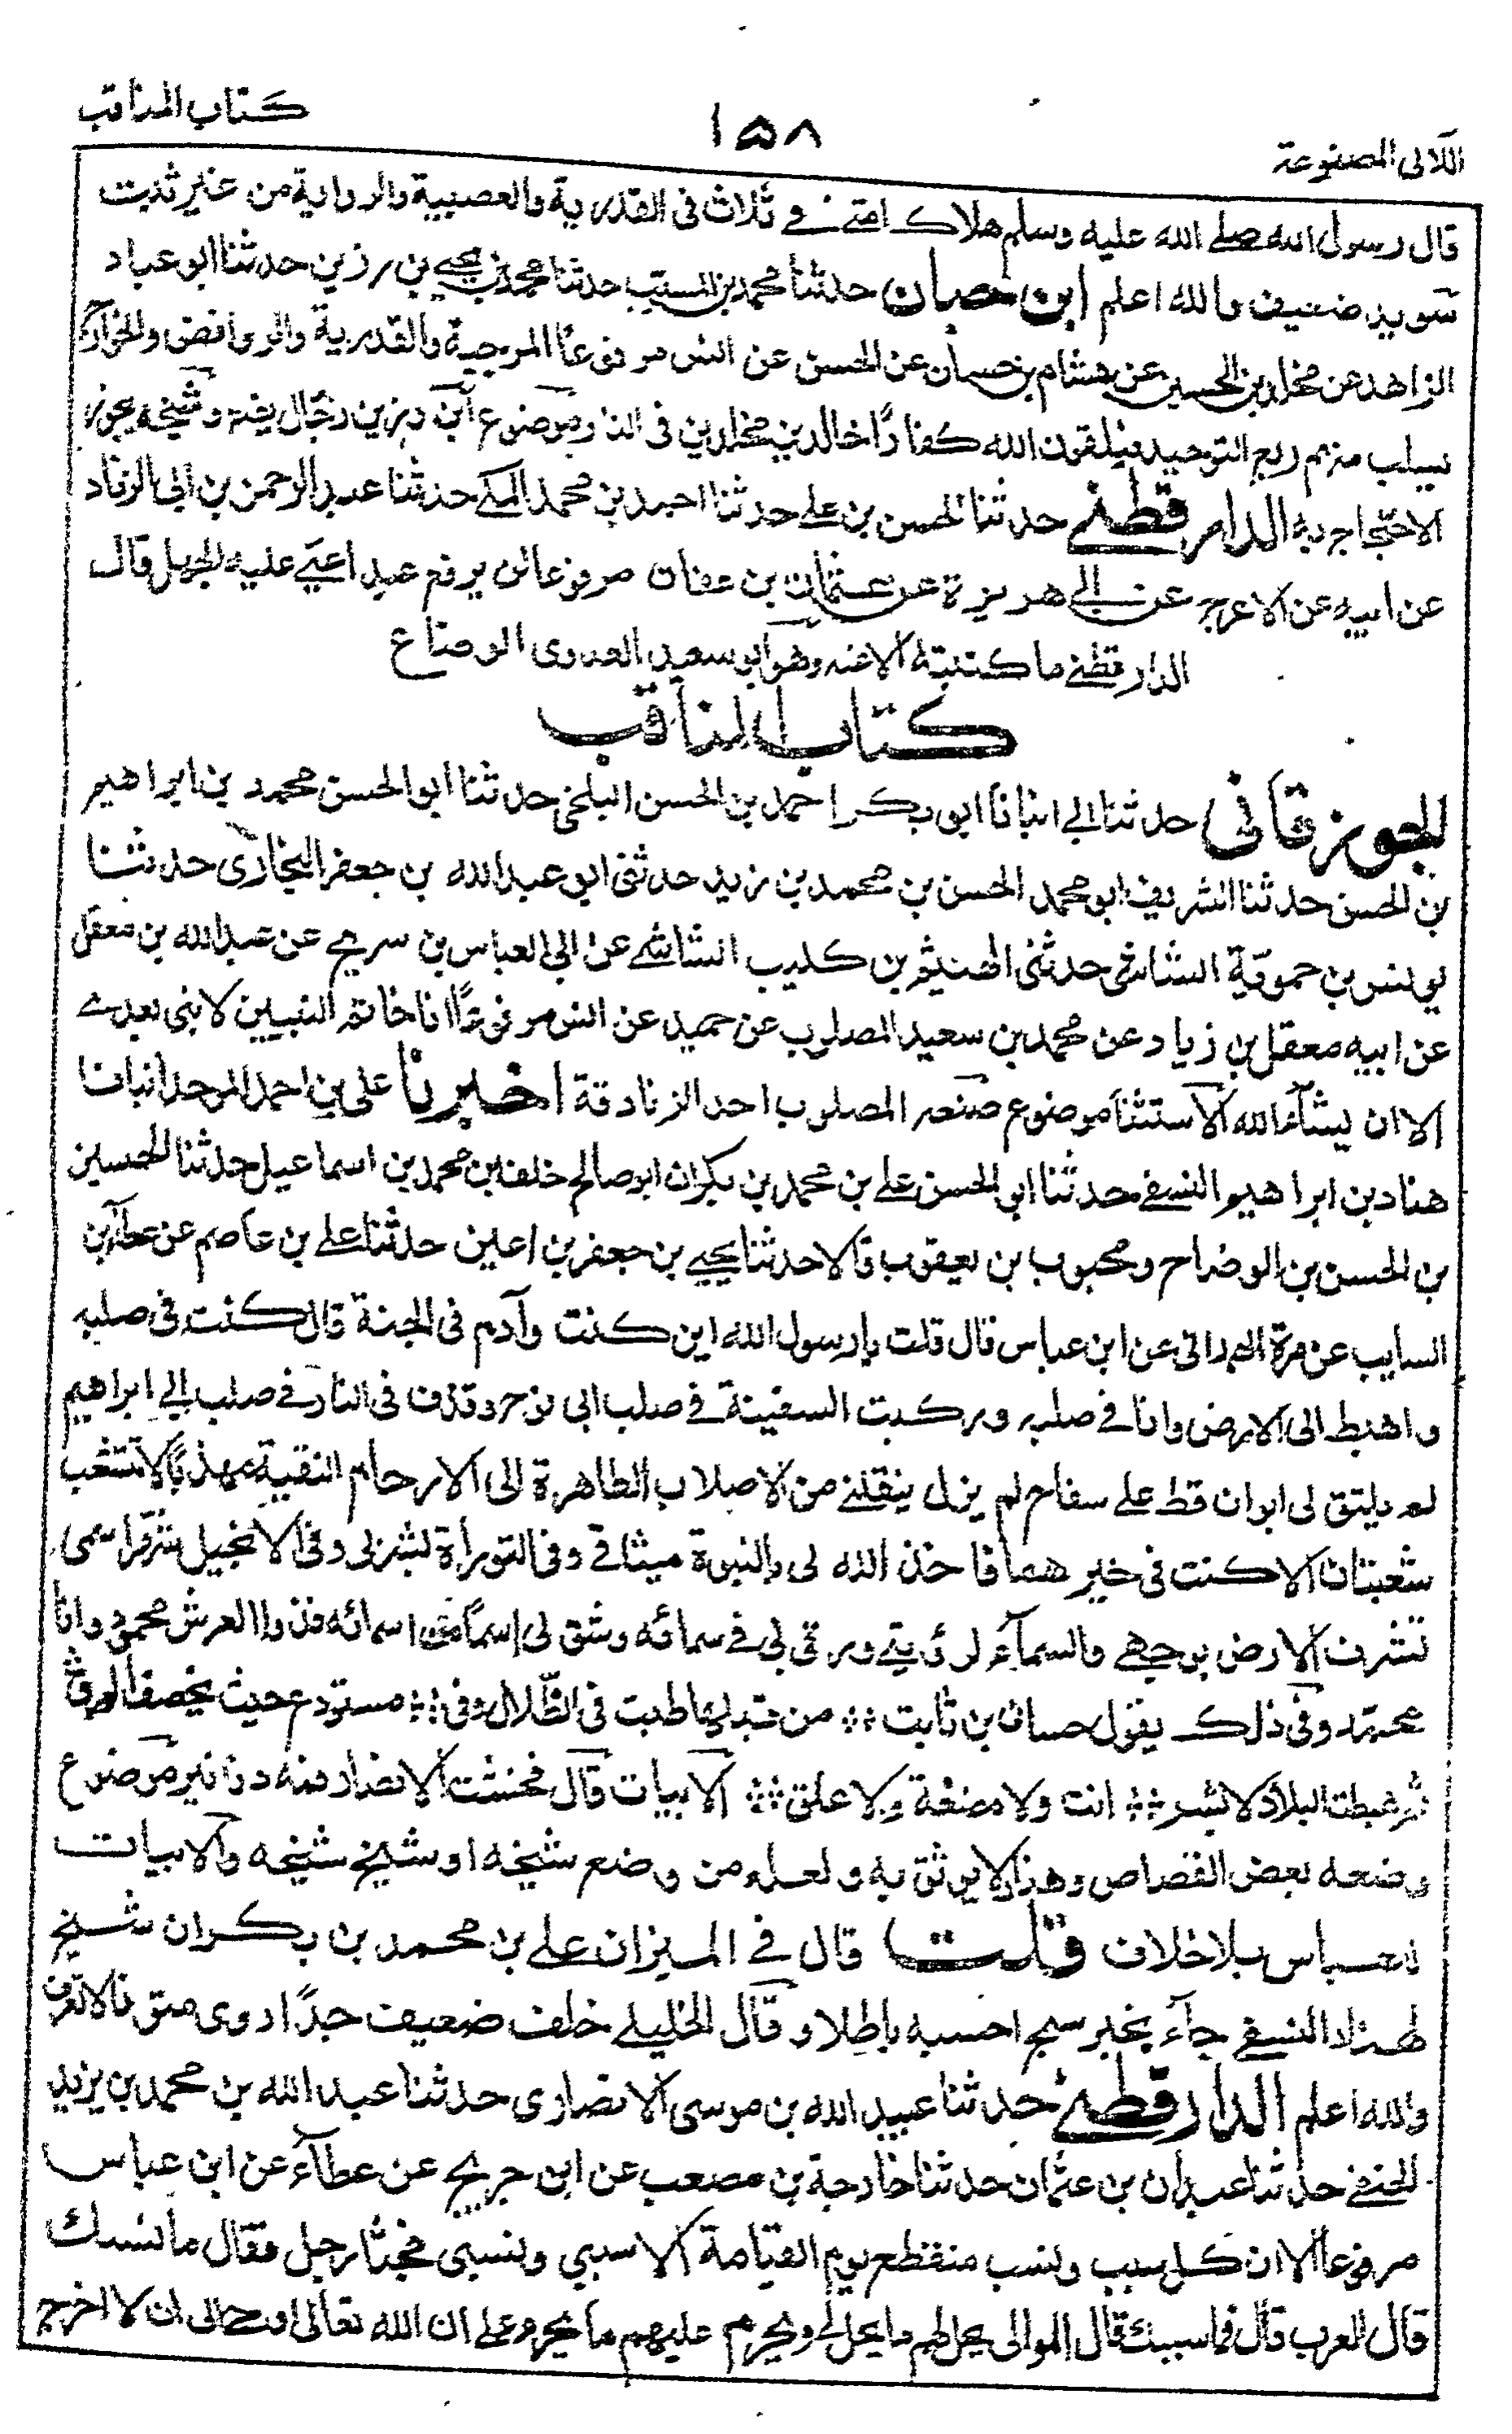 كتاب المناقب
١٥٨
اللآلى المصنوعة
قال رسول الله صلے الله عليه وسلم هلاك امتے فے ثلاث فى القدرية والعصبية والرواية من غير ثبت
سويد ضعيف والله اعلم ابن حبان حدثنا محمد بن المسيب حدثنا محمد بن يحيے بن رزين حدثنا ابو عباد
الزاهد عن مخلد بن الحسين عن هشام بن حسان عن الحسن عن انس مرفوعًا المرجية والقدرية والروافض والخوارج
يسلب منهم ربع التوحيد فيلقون الله كفارًا خالدين مخلدين فى النار موضوع آفته ابن رزين دجال يضع وشيخه يجوز
الاحتجاج به الدارقطنے حدثنا الحسن بن علے حدثنا احمد بن محمد المكے حدثنا عبد الرحمن بن ابى الزناد
عن ابيه عن الاعرج عن ابى هريرة عن عثمان بن عفان مرفوعا لن يرفع عبد اعيے عليه الجهل قال
الدارقطنے ما كتبته الا عنه وهو ابو سعيد العدوى الوضاع
كتاب المناقب
الجوزقانى حدثنا ابى انبانا ابو بكر احمد بن الحسن البلخى حدثنا ابو الحسن محمد بن ابراهيم
بن الحسن حدثنا الشريف ابو محمد الحسن بن محمد بن زيد حدثنى ابو عبد الله بن جعفر البخارى حدثنا
يونس بن حموية الشاشى حدثنى الهيثم بن كليب الشاشے عن ابى العباس بن سريج عن عبد الله بن معقل
عن ابيه معقل بن زياد عن محمد بن سعيد المصلوب عن حميد عن انس مرفوعًا انا خاتم النبيين لا نبى بعدے
الا ان يشآء الله الاستثنا موضوع صنعه المصلوب احد الزنادقة اخبرنا على بن احمد الموحد انبانا
هناد بن ابراهيم النسفے حدثنا ابو الحسن علے بن محمد بن بكران ابو صالح خلف بن محمد بن اسماعيل حدثنا الحسين
بن الحسن بن الوضاح ومحبوب بن يعقوب قالا حدثنا يحيے بن جعفر بن اعين حدثنا علے بن عاصم عن عطآء بن
السايب عن مرة الهمدانى عن ابن عباس قال قلت يا رسول الله اين كنت وآدم فى الجنة قال كنت فى صلبه
واهبط الى الارض وانا فے صلبه وركبت السفينة فے صلب ابى نوح وقذف فى النار فے صلب ابى ابراهيم
لم يلتق لى ابوان قط علے سفاح لم يزل ينقلنے من الاصلاب الطاهرة الى الارحام النقية مهذبًا لا تتشعب
شعبتان الا كنت فى خيرهما فاخذ الله لى بالنبوة ميثاقے وفى التوراة بشر بى وفى الانجيل شهر اسمى
تشرق الارض بوجهے والسمآء لرؤيتے ورقى بى فے سمائه وشق لى اسمًا من اسمائه فذو العرش محمود وانا
محمد وفى ذلك يقول حسان بن ثابت ؞ من قبلها طبت فى الظلال وفى ؞ مستودع حيث يخصف الورق
ثم هبطت البلاد لا بشر ؞ انت ولا مضغة ولا علق ؞ الابيات قال فحشت الانصار فمه دنانير موضوع
وضعه بعض القصاص وهناد لا يوثق به ولعله من وضع شيخه او شيخ شيخه والابيات
للعباس بلا خلاف قلت قال فے الميزان علے بن محمد بن بكران شيخ
لهناد النسفے جآء بخبر سمج احسبه باطلا وقال الخليلے خلف ضعيف جدًا روى متونا لا تعرف
والله اعلم الدارقطنے حدثنا عبيد الله بن موسى الانصارى حدثنا عبد الله بن محمد بن يزيد
الحنفے حدثنا عبدان بن عثمان حدثنا خارجة بن مصعب عن ابن جريج عن عطآء عن ابن عباس
مرفوعا الا ان كل سبب ونسب منقطع يوم القيامة الا سببى ونسبى فجثا رجل فقال ما نسبك
قال العرب قال فما سببك قال الموالى يحل لهم ما يحل لى ويحرم عليهم ما يحرم علے ان الله تعالى اوحے الى ان لا اخرج